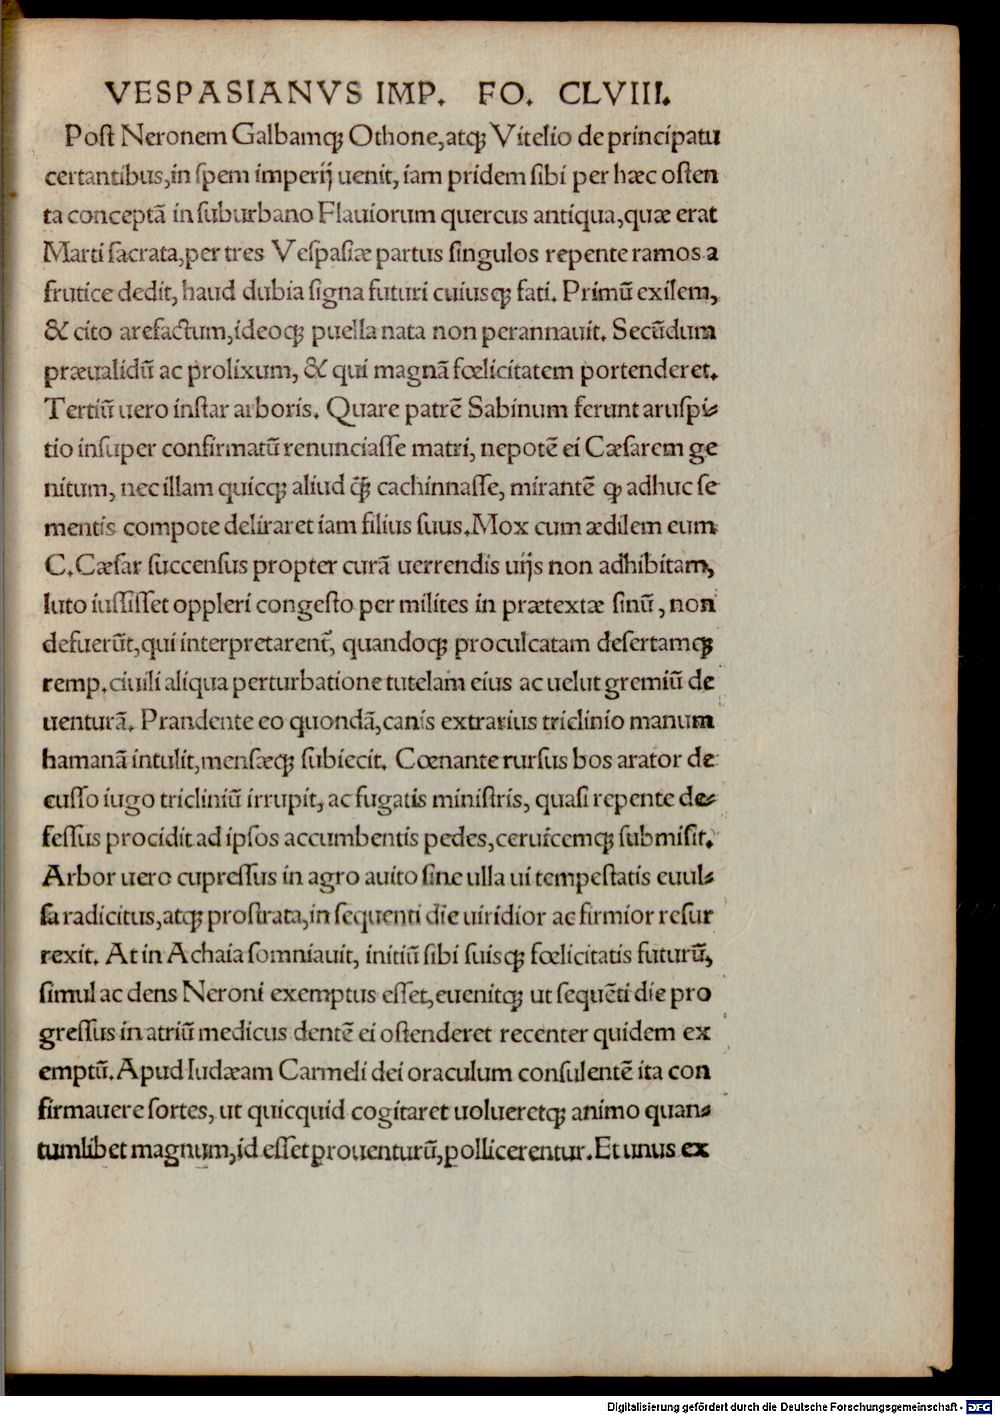 VESPASIANVS IMP. FO. CLVIII.
Poſt Neronem Galbamqꝫ Othone, atqꝫ Vitelio de principatu
certantibus, in ſpem imperij uenit, iam pridem ſibi per hæc oſten
ta conceptã in ſuburbano Flauiorum quercus antiqua, quæ erat
Marti ſacrata, per tres Veſpaſiæ partus ſingulos repente ramos a
frutice dedit, haud dubia ſigna futuri cuiusqꝫ fati. Primũ exilem,
& cito arefactum, ideoqꝫ puella nata non perannauit. Secũdum
præualidũ ac prolixum, & qui magnã fœlicitatem portenderet.
Tertiũ uero inſtar arboris. Quare patrẽ Sabinum ferunt aruſpi-
tio inſuper confirmatũ renunciaſſe matri, nepotẽ ei Cæſarem ge
nitum, nec illam quicqꝫ aliud q̃ꝫ cachinnaſſe, mirantẽ ꝙ adhuc ſe
mentis compote deliraret iam filius ſuus. Mox cum ædilem eum
C. Cæſar ſuccenſus propter curã uerrendis uijs non adhibitam,
luto iuſſiſſet oppleri congeſto per milites in prætextæ ſinũ, non
defuerũt, qui interpretarent᷑, quandoqꝫ proculcatam deſertamqꝫ
remp. ciuili aliqua perturbatione tutelam eius ac uelut gremiũ de
uenturã. Prandente eo quondã, canis extrarius triclinio manum
hamanã intulit, menſæqꝫ ſubiecit. Cœnante rurſus bos arator de
cuſſo iugo tricliniũ irrupit, ac fugatis miniſtris, quaſi repente de-
feſſus procidit ad ipſos accumbentis pedes, ceruicemqꝫ ſubmiſit.
Arbor uero cupreſſus in agro auito ſine ulla ui tempeſtatis euul-
ſa radicitus, atqꝫ proſtrata, in ſequenti die uiridior ac firmior reſur
rexit. At in Achaia ſomniauit, initiũ ſibi suisqꝫ fœlicitatis futurũ,
ſimul ac dens Neroni exemptus eſſet, euenitqꝫ ut ſequẽti die pro
greſſus in atriũ medicus dentẽ ei oſtenderet recenter quidem ex
emptũ. Apud Iudæam Carmeli dei oraculum conſulentẽ ita con
firmauere ſortes, ut quicquid cogitaret uolueretqꝫ animo quan-
tumlibet magnum, id eſſet prouenturũ, pollicerentur. Et unus ex
Digitalisierung gefördert durch die Deutsche Forschungsgemeinschaft - DFG